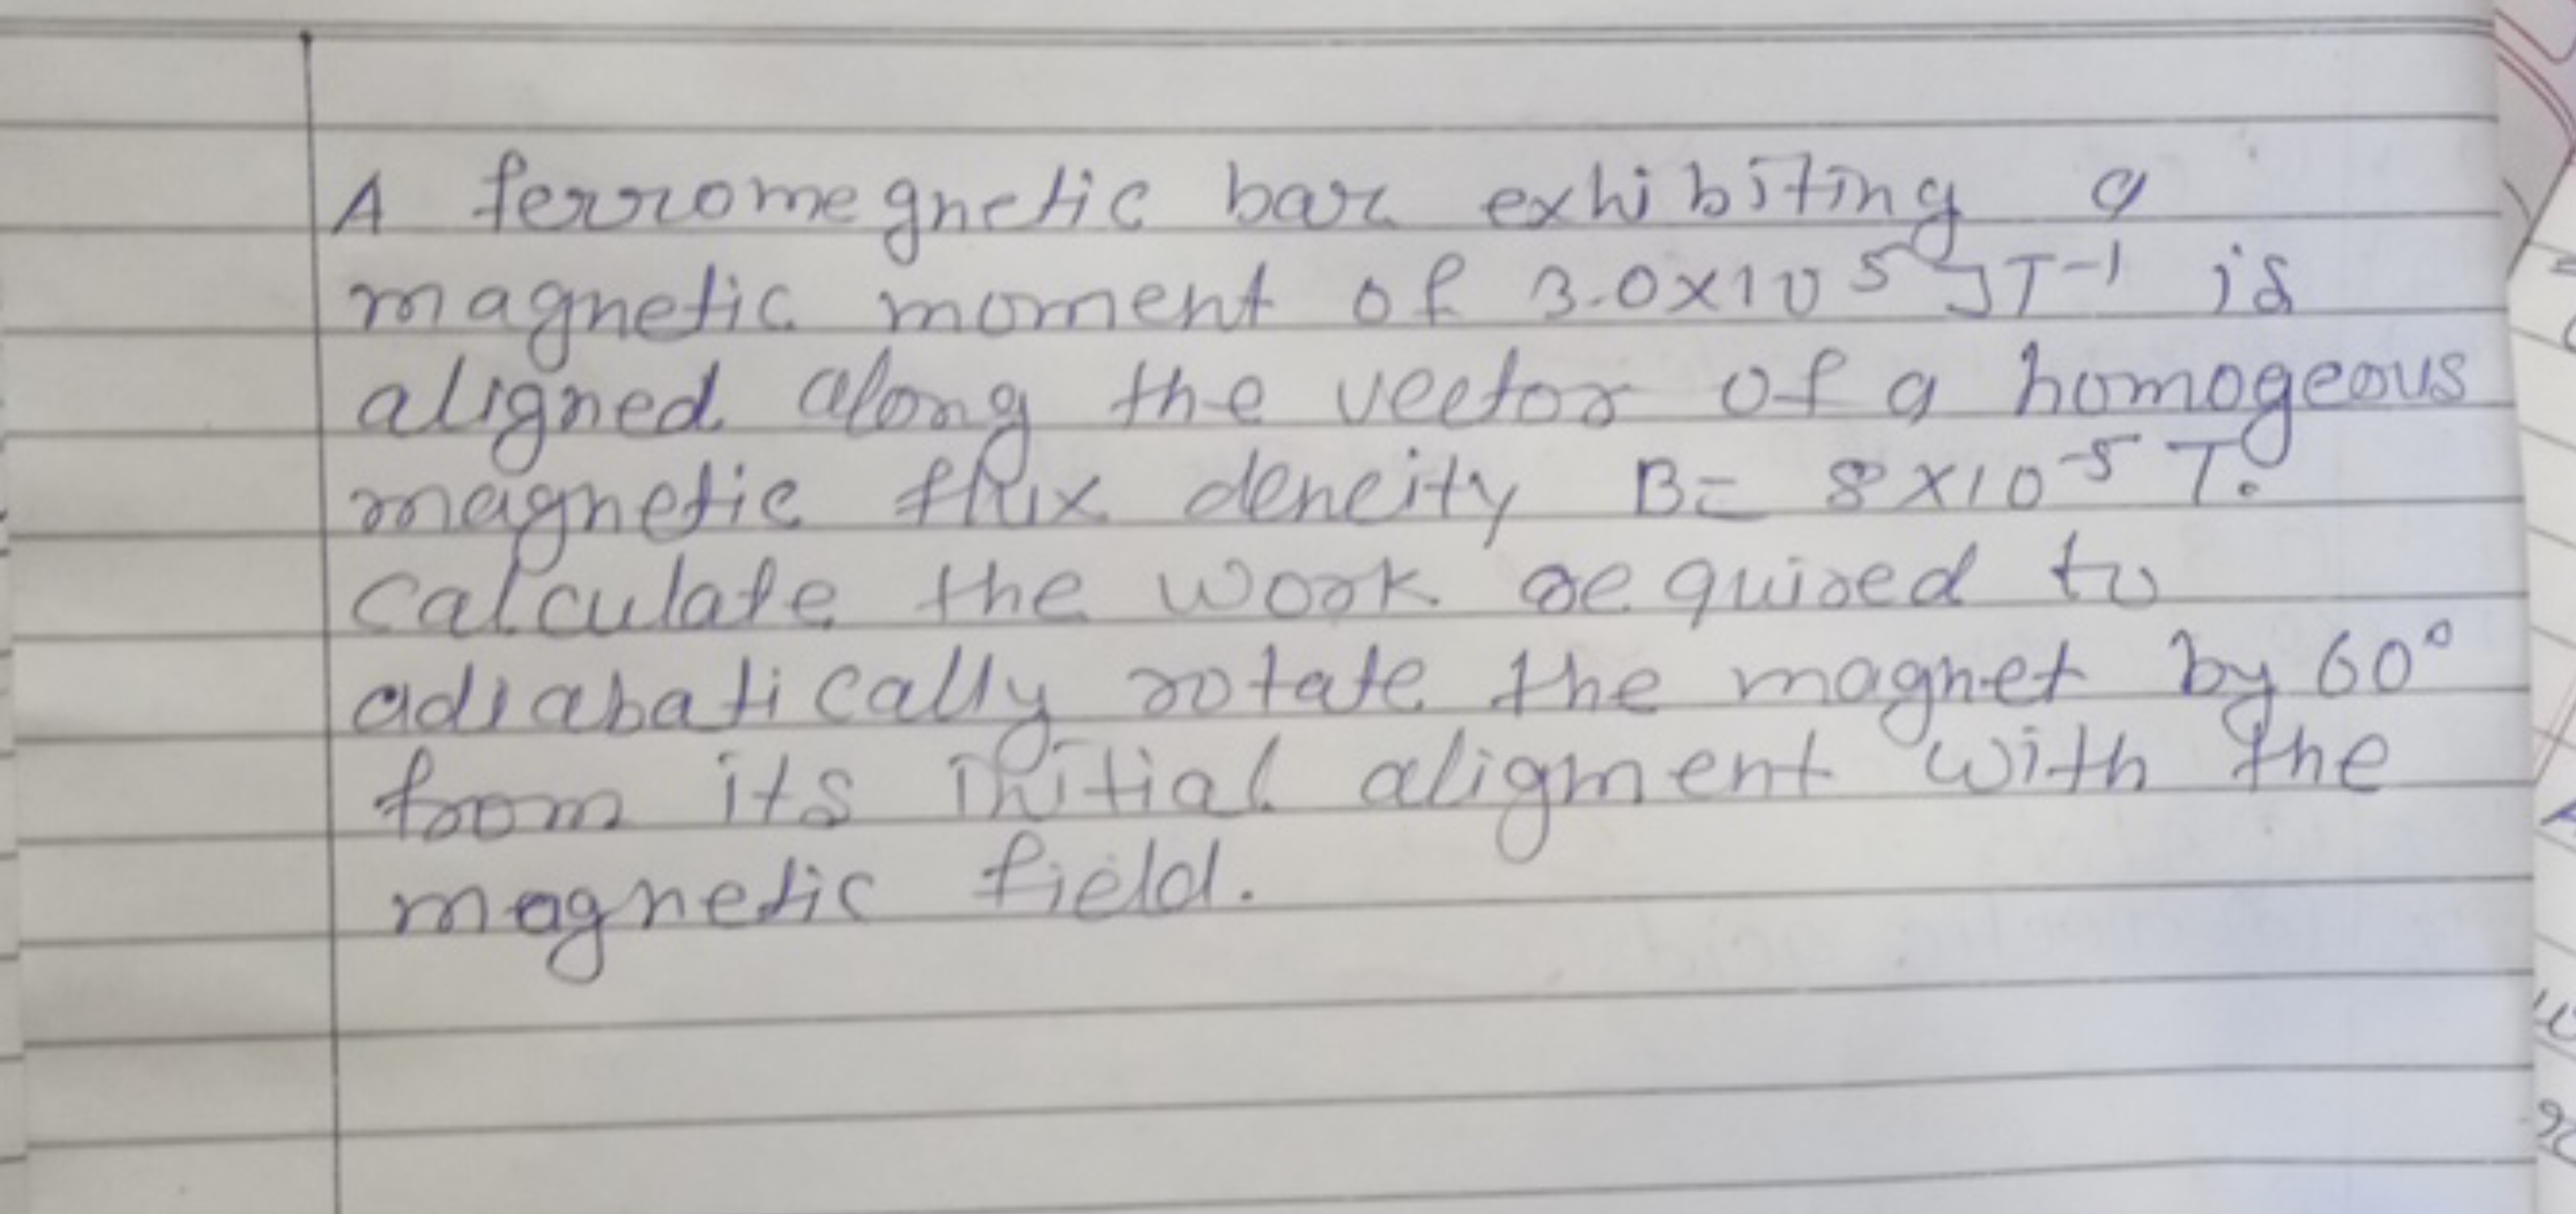 A ferromegnetic bar exhibiting a
magnetic moment of 3.0x10 5 JT-1 is
aligned along the vector of a homogeous
magnetic flux dencity B= 8x10-5 T.
Calculate the work required to
adiabatically rotate the magnet by 60°
from its initial aligment with the
magnetic field.